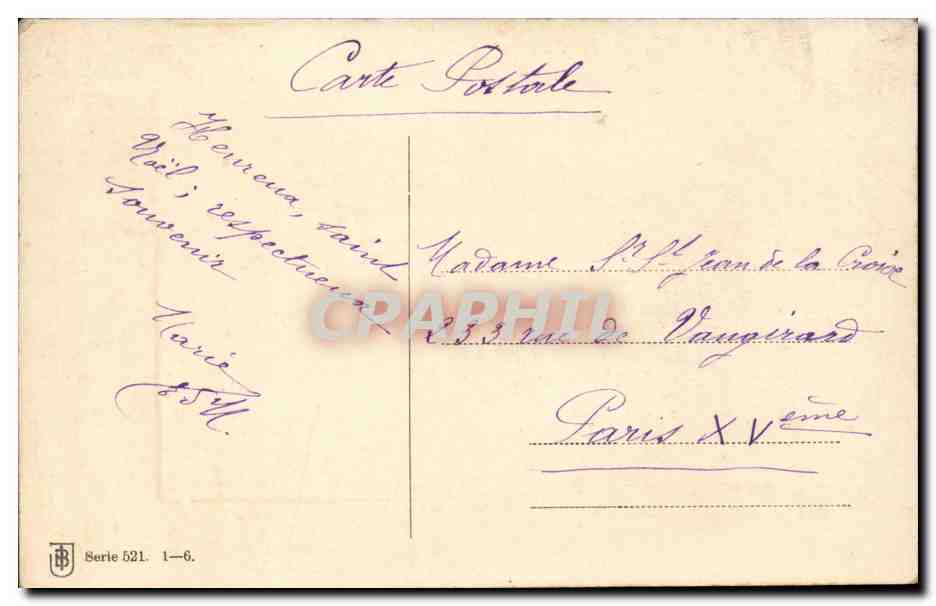 Carte Postale
Heureux, saint
Noël; respectueux
souvenir
Marie
Madame Sr St Jean de la Croix
233 rue de Vaugirard
Paris XVème
CRAPHIL
Serie 521. 1—6.